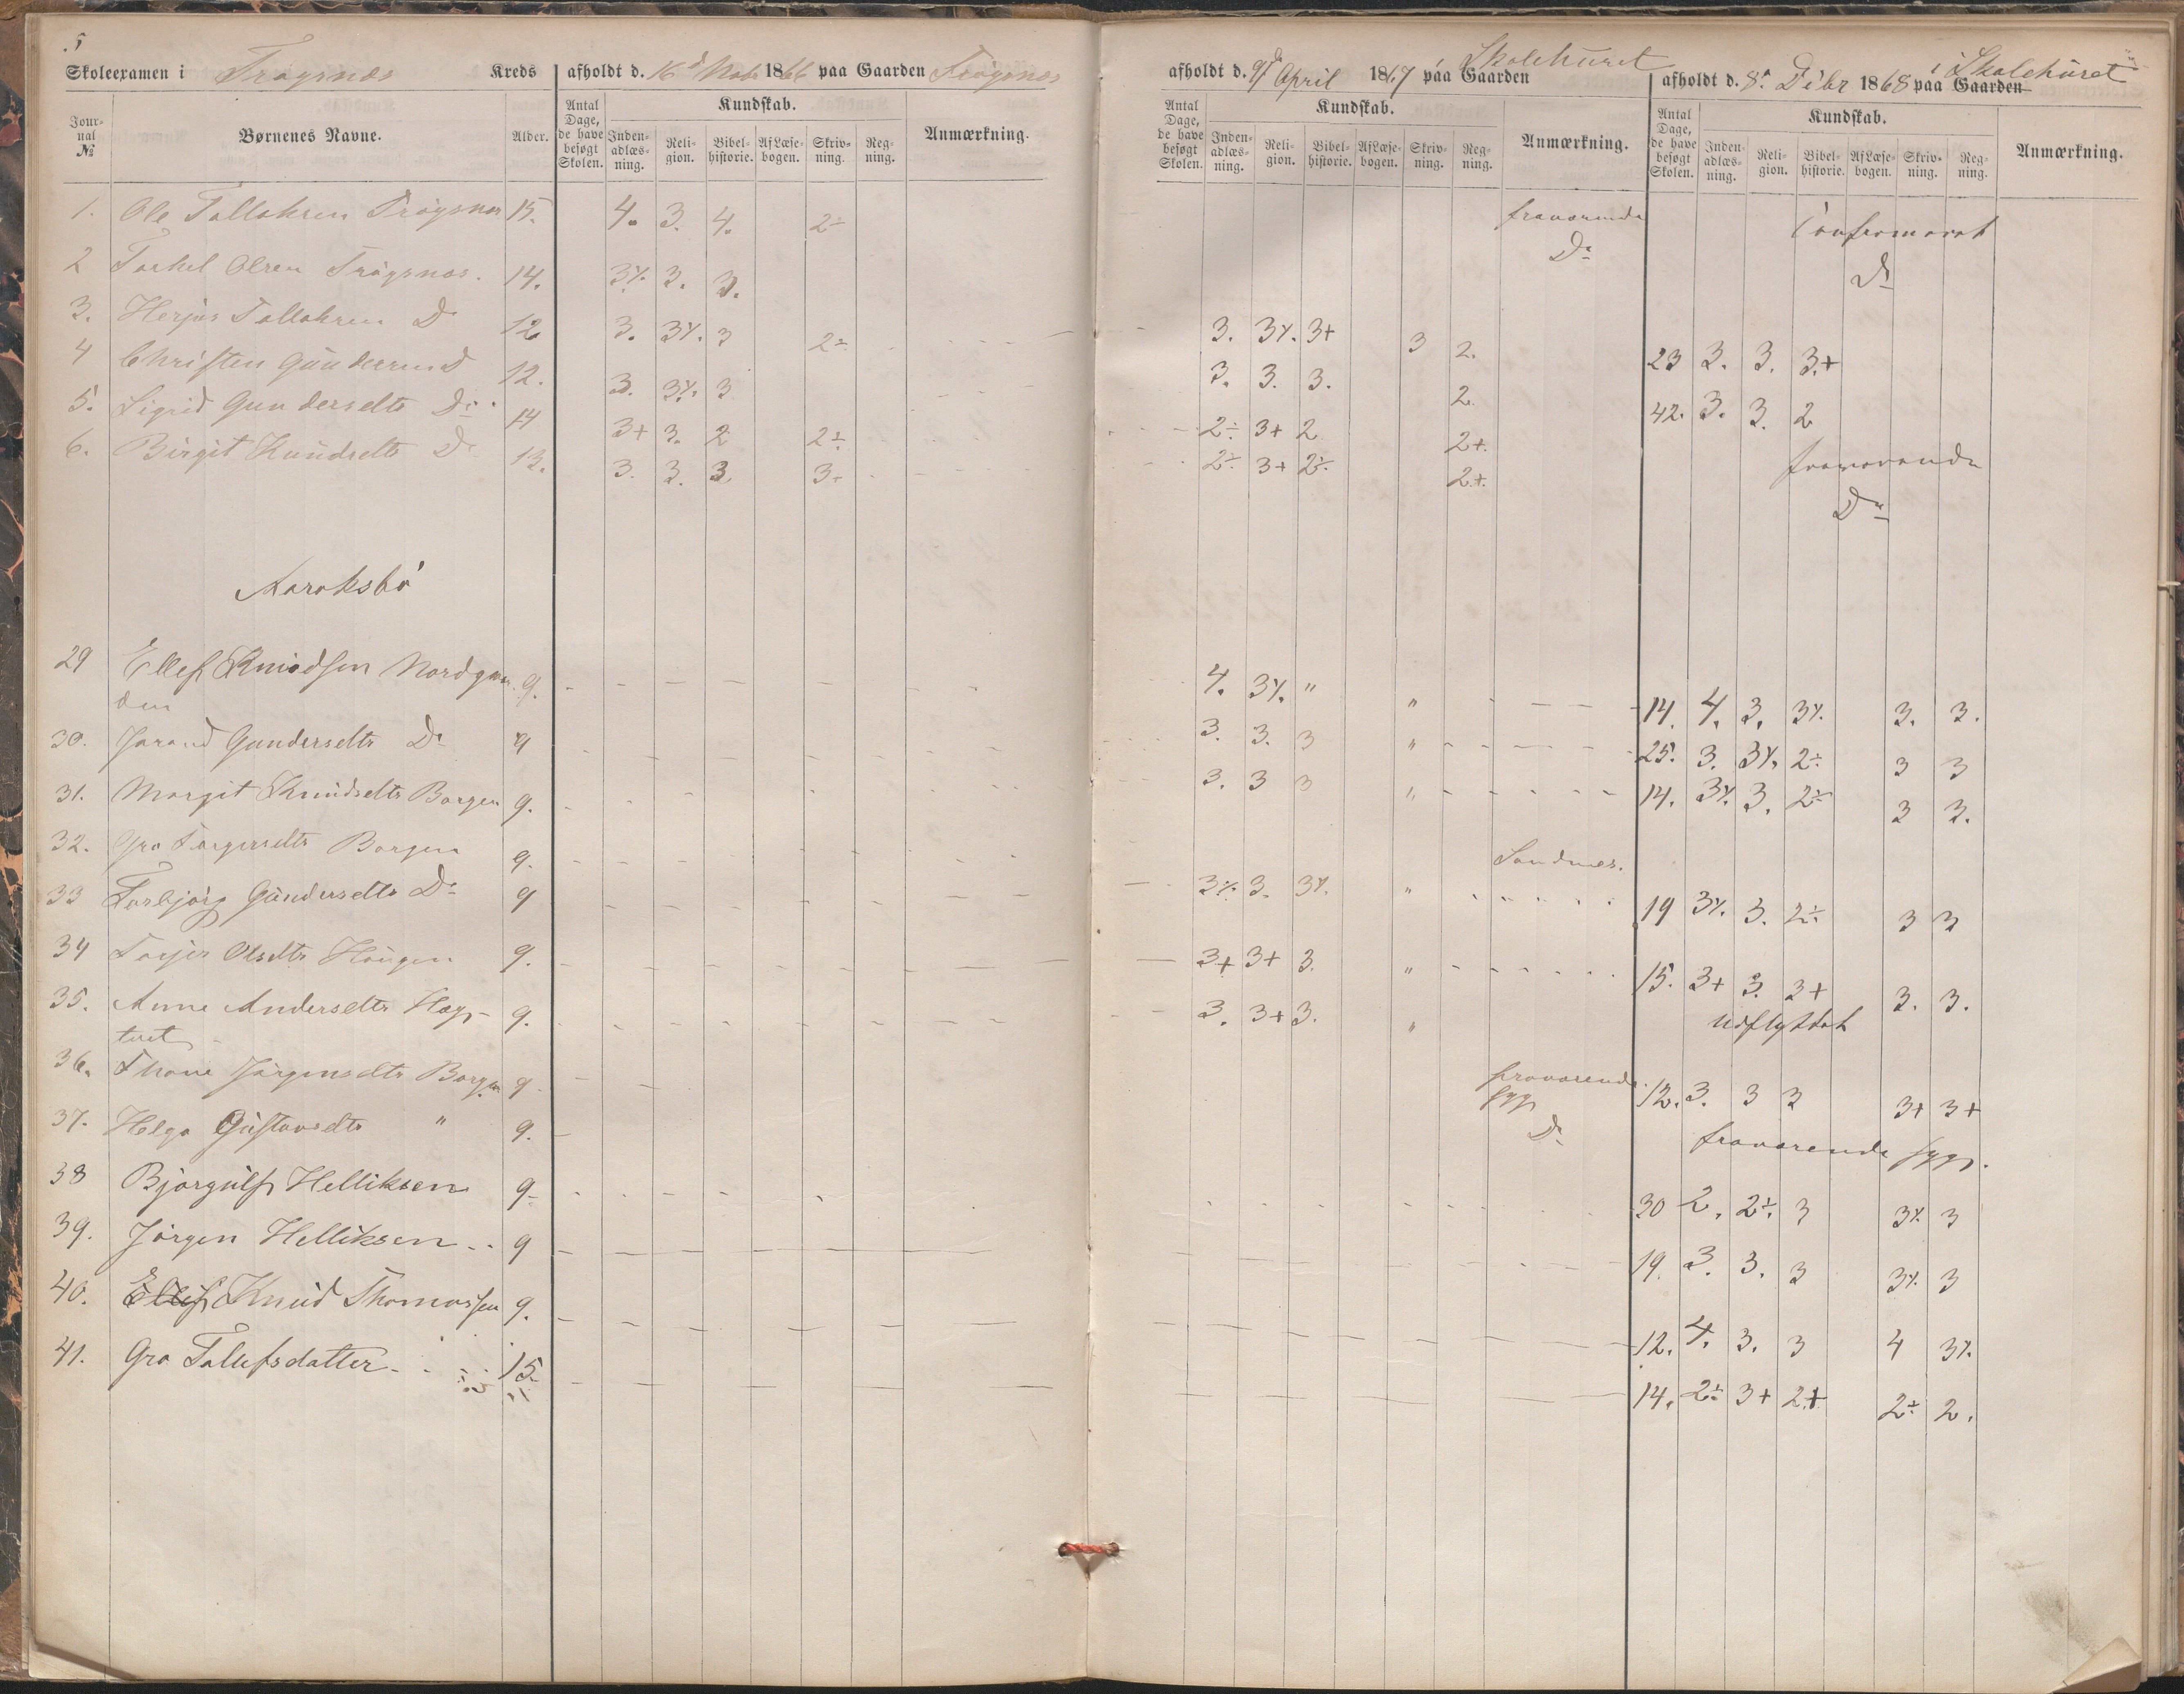 5
Skoleexamen i Trøgsnæs Kreds afholdt d. 16d Nob 1866 paa Gaarden Trøgsnæs
afholdt d. 9d April 1867 paa Gaarden Skolehuset
afholdt d. 8d Febr 1868 paa Gaarden i Skolehuset
Journal № Børnenes Navne. Alder. Antal Dage, de have besøgt Skolen. Kundskab. Indenadlæsning. Religion. Bibelhistorie. Af Læsebogen. Skrivning. Regning. Anmærkning.
Antal Dage, de have besøgt Skolen. Kundskab. Indenadlæsning. Religion. Bibelhistorie. Af Læsebogen. Skrivning. Regning. Anmærkning.
Antal Dage, de have besøgt Skolen. Kundskab. Indenadlæsning. Religion. Bibelhistorie. Af Læsebogen. Skrivning. Regning. Anmærkning.
1. Ole Tallaksen Trøgsnæs 15. 4. 3. 4. 2÷ fraværende Confirmeret
2 Torkel Olsen Trøgsnæs. 14. 3÷ 3. 3. Do Do
3. Herjus Tallaksen Do 12 3. 3÷ 3 2÷ 3. 3÷ 3+ 3 2. 23 3. 3. 3+
4 Christen Gundersen Do 12. 3. 3÷ 3 3. 3. 3. 2. 42. 3. 3. 2
5. Sigrid Gundersdtr Do 14 3+ 3. 2 2÷ 2÷ 3+ 2 2+ fraværende
6. Birgit Knudsdtr Do 13. 3. 3. 3 3÷ 2÷ 3+ 2÷ 2+ Do
Aaraksbø
29 Ellef Knudsen Nordgaar 9. 4. 3÷ " " 14. 4. 3. 3÷ 3. 3.
den
30. Jorand Gundersdtr Do 9 3. 3. 3 " 25. 3. 3÷ 2÷ 3 3
31. Margit Knudsdtr Borgen 9. 3. 3 3 " 14. 3÷ 3. 2÷ 3 3.
32. Gro Torgersdtr Borgen 9. Sandnes.
33 Torbjørg Gundersdtr Do 9 3÷ 3. 3÷ " 19 3÷ 3. 2÷ 3 3
34 Torjer Olsdtr Haugen 9. 3+ 3+ 3. " 15. 3+ 3. 3+ 3. 3.
35. Anne Andersdtr Hag- 9. 3. 3+ 3. " Udflyttet
36. Thone Jørgensdtr Borgen 9 fraværende syg 12. 3. 3 3 3+ 3+
37. Helga Gustavsdtr " 9. Do fraværende syg.
38 Bjørgulf Helliksen 9 30 2. 2÷ 3 3÷ 3
39. Jørgen Helliksen 9 19. 3. 3. 3 3÷ 3
40. Ellef Knud Thomassen 9. 12. 4. 3. 3 4 3÷
41. Gro Tallefsdatter 15. 14. 2÷ 3+ 2+ 2÷ 2.